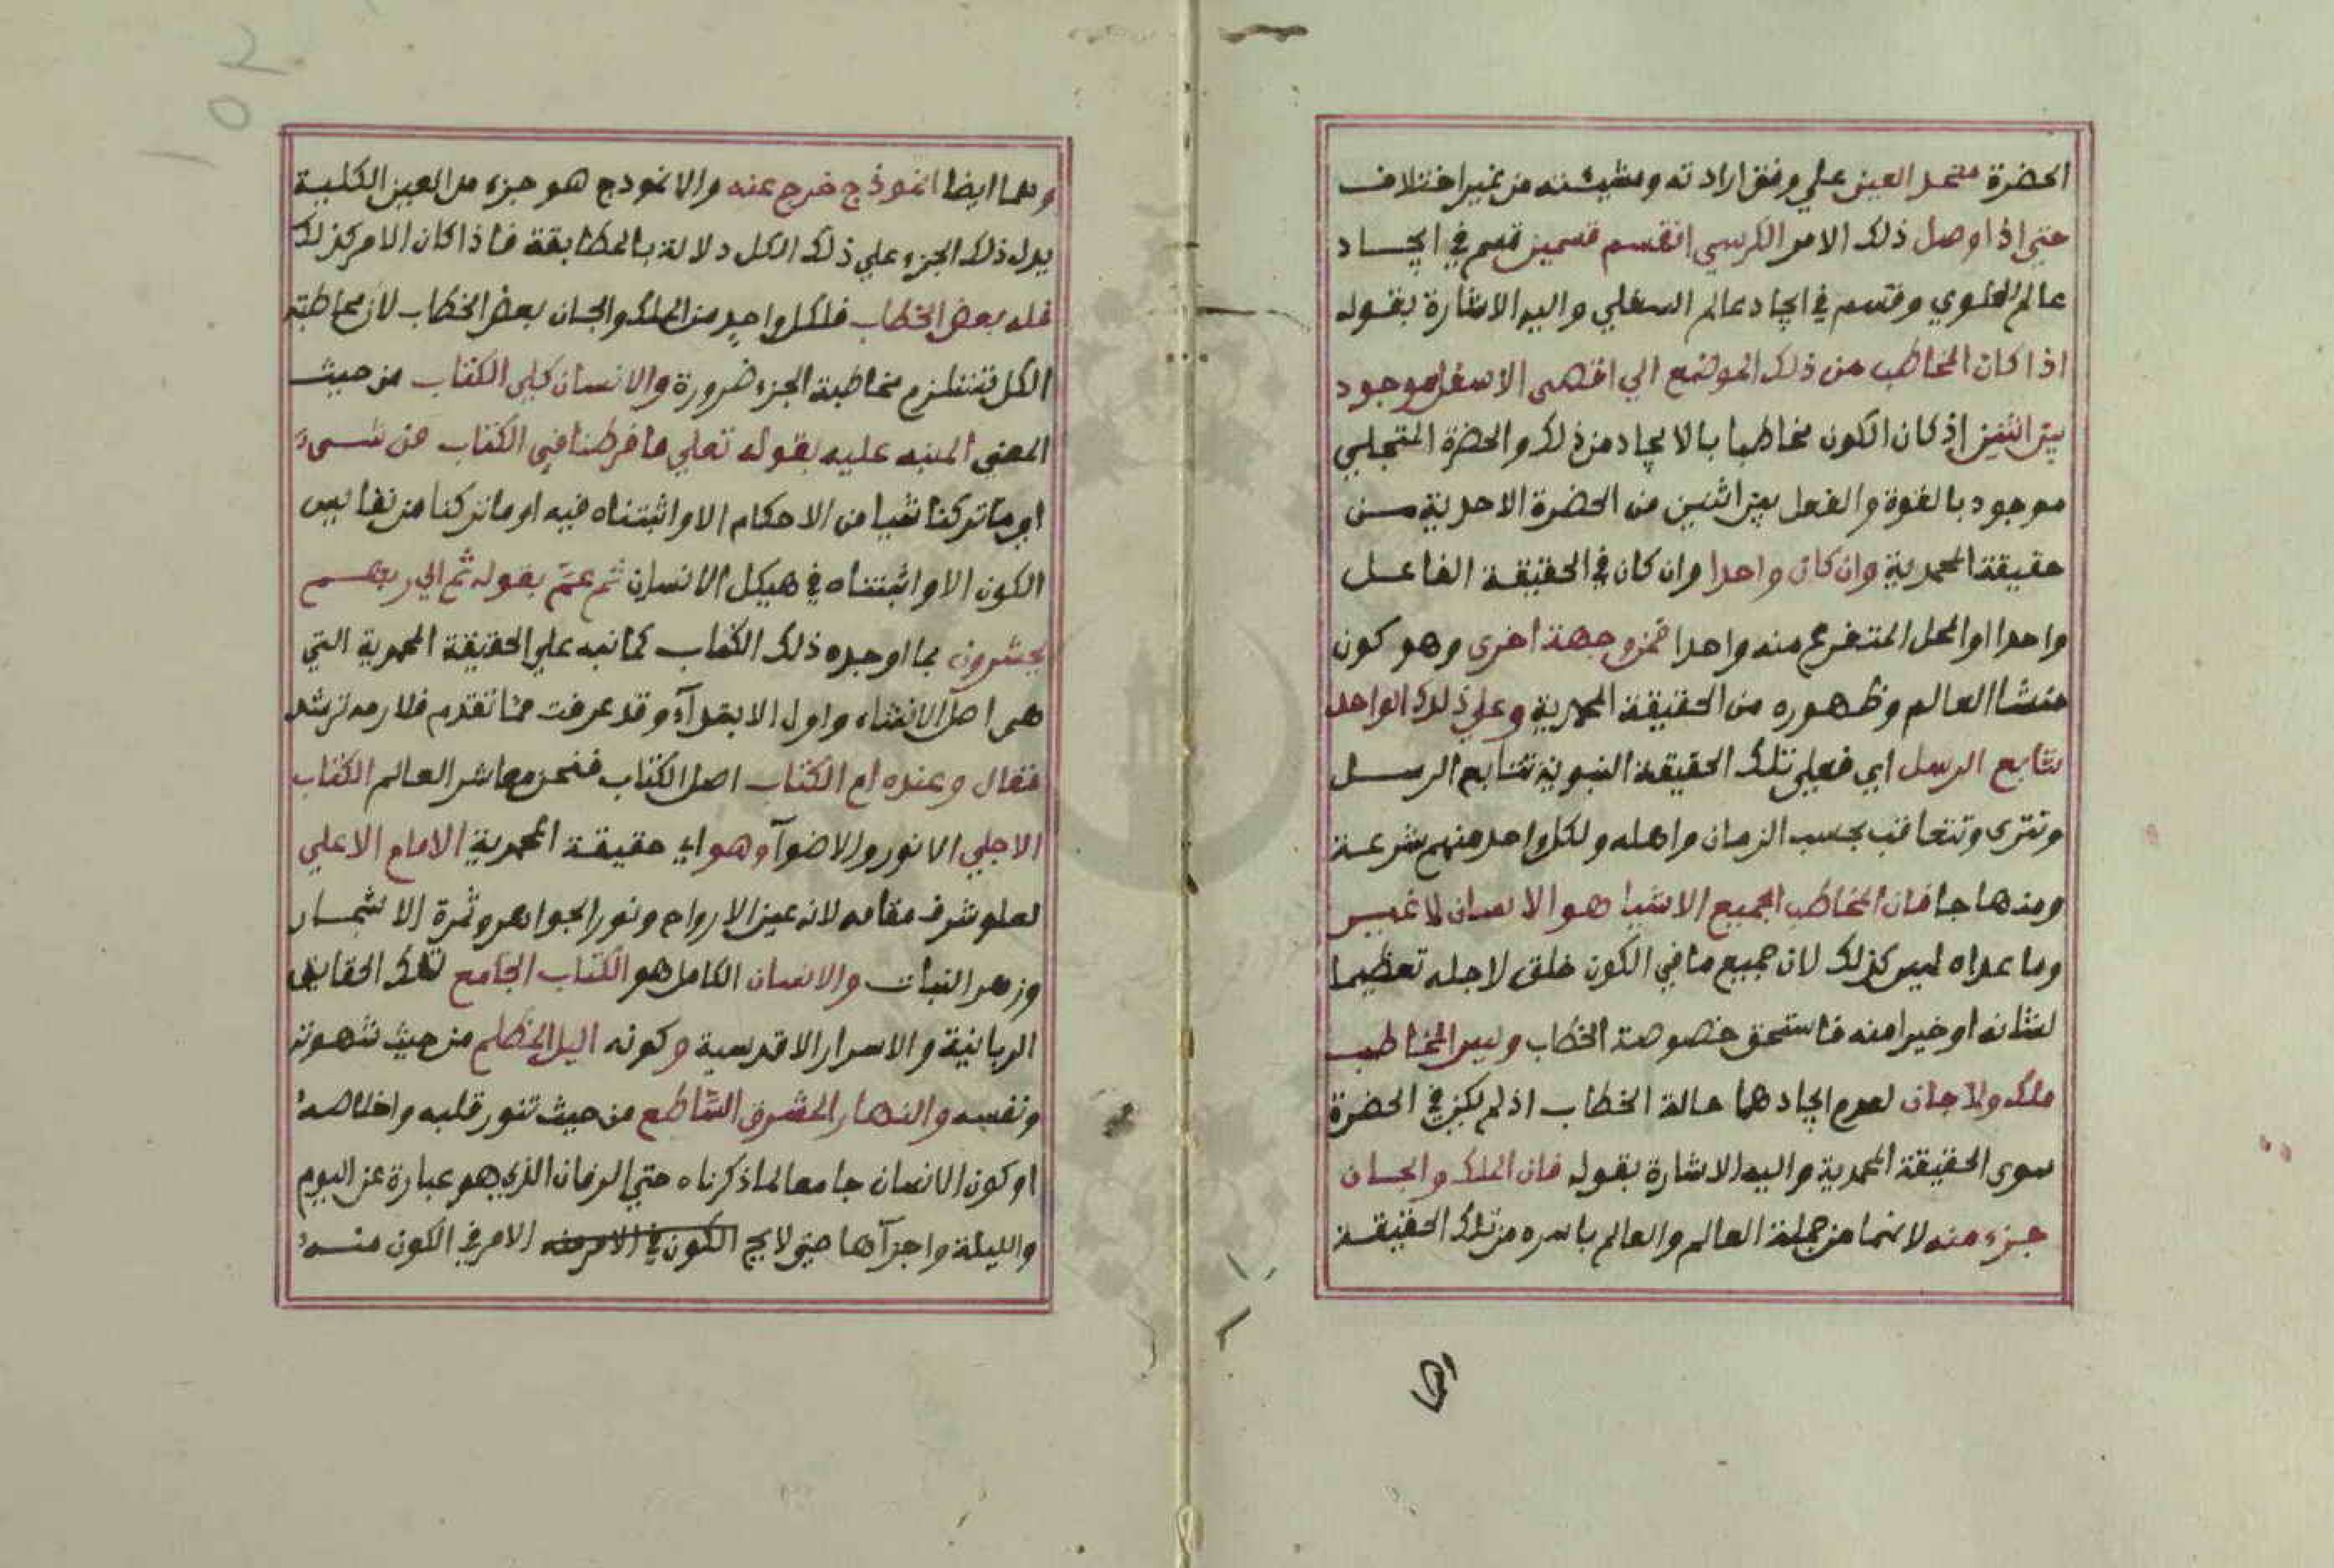 الحضرة متحد العين علي وفق ارادته ومشيئته من غير اختلاف
حتي اذا وصل ذلك الامر الكرسي انقسم قسمين قسم في ايجاد
عالم العلوي وقسم في ايجاد عالم السفلي واليه الاشارة بقوله
اذا كان المخاطب من ذلك الموضع الي اقتهى الاسفل موجود
بين اثنين اذ كان الكون مخاطبا بالايجاد من ذلك والحضرة المتجلي
موجود بالقوة والفعل بين اثنين من الحضرة الاحدية من
حقيقة المحمدية وان كان واحدا وان كان في الحقيقة الفاعل
واحدا او المحل المتفرع منه واحدا فمن وجهة اخرى وهو كون
منشا العالم وظهوره من الحقيقة المحمدية وعلي ذلك الواحد
تتابع الرسل اي فعلي تلك الحقيقة النبوية تتابع الرسل
وتترى وتتعاقب بحسب الزمان واهله ولكل واحد منهم شرعة
ومنهاجا فان المخاطب الجميع الاشيا هو الانسان لا غير
وما عداه ليس كذلك لان جميع ما في الكون خلق لاجله تعظيما
لشانه او خيرا منه فاستحق خصوصة الخطاب وليس المخاطب
ملك ولا جان لعدم ايجادهما حالة الخطاب اذ لم يكن في الحضرة
سوى الحقيقة المحمدية واليه الاشارة بقوله فان الملك والجان
جزء منه لانهما من جملة العالم والعالم باسره من تلك الحقيقة
وهما ايضا انموذج خرج عنه والانموذج هو جزء من العين الكلية
يدل ذلك الجزء علي ذلك الكل دلالة بالمطابقة فاذا كان الامر كذلك
فله بعض الخطاب فلكل واحد من الملك والجان بعض الخطاب لان مخاطبة
الكل تستلزم مخاطبة الجزء ضرورة والانسان كلي الكتاب من حيث
المعني المنبه عليه بقوله تعلي ما فرطنا في الكتاب من شيء
اي ما تركنا شيا من الاحكام الا واثبتناه فيه او ما تركنا من نفايس
الكون الا واثبتناه في هيكل الانسان ثم عمّ بقوله ثم الي ربهم
يحشرون بما اوجده ذلك الكتاب كما نبه علي الحقيقة المحمدية التي
هي اصل الانشاء واول الابتدآء وقد عرفت مما تقدم فلا رمه ترشد
فقال وعنده ام الكتاب اصل الكتاب فنحن معاشر العالم الكتاب
الاجلي الانور والاضوآ وهو اي حقيقة المحمدية الامام الاعلي
لعلو شرف مقامه لانه عين الارواح ونور الجواهر وثمرة الاشجار
وزهر النبات والانسان الكامل هو الكتاب الجامع لتلك الحقايق
الربانية والاسرار الاقدسية وكونه اليل المظلم من حيث شهوته
ونفسه والنهار المشرق الساطع من حيث تنور قلبه واخلاصه
او كون الانسان جامعا لما ذكرناه حتي الزمان الذي هو عبارة عن اليوم
والليلة واجزآها حتي لا يج الكون في الامر منه الامر في الكون منه